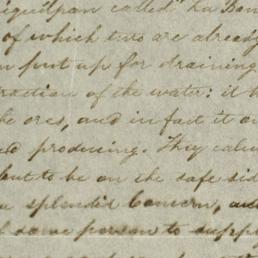 iquilpan called "La Ban
of which two are already
n put up for draining
traction of the water: it h
he ores, and in fact it on
d producing. They calcu
but to be on the safe sid
a splendid Concern, and
d some person to supply